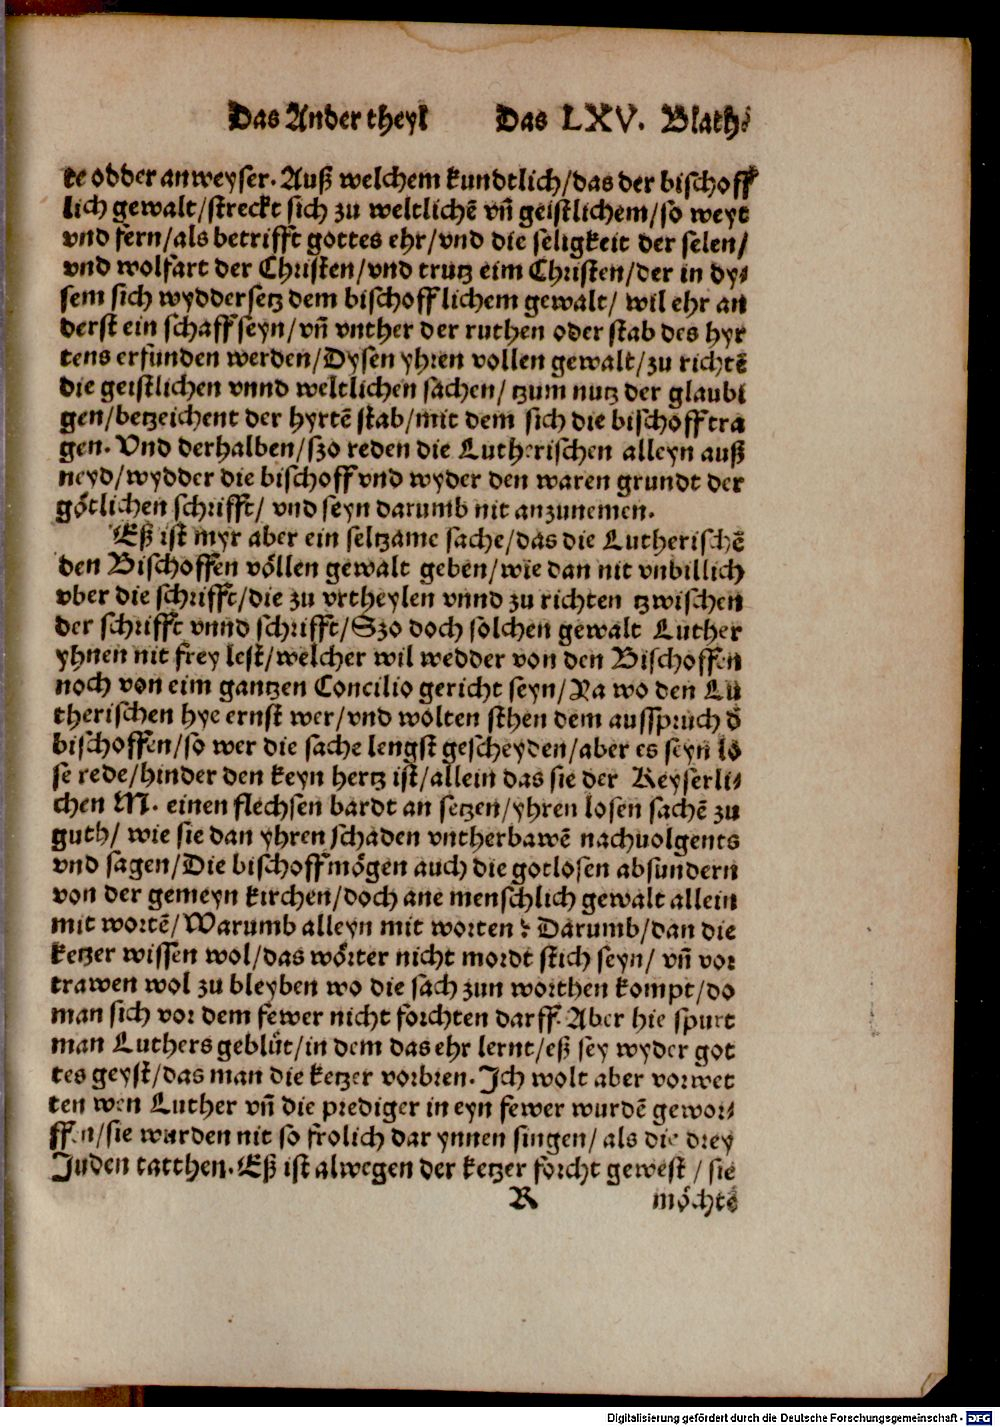 Das Ander theyl Das LXV. Blath.
te odder anweyser. Auß welchem kundtlich/das der bischoff
lich gewalt/streckt sich zu weltlichē vn̄ geistlichem/so weyt
vnd fern/als betrifft gottes ehr/vnd die seligkeit der selen/
vnd wolfart der Christen/vnd trutz eim Christen/der in dy⸗
sem sich wyddersetz dem bischofflichem gewalt/ wil ehr an
derst ein schaff seyn/vn̄ vnther der ruthen oder stab des hyr
tens erfunden werden/Dysen yhren vollen gewalt/zu richtē
die geistlichen vnnd weltlichen sachen/ tzum nutz der glaubi
gen/betzeichent der hyrtē stab/mit dem sich die bischoff tra
gen. Vnd derhalben/szo reden die Lutherischen alleyn auß
neyd/wydder die bischoff vnd wyder den waren grundt der
götlichen schrifft/ vnd seyn darumb nit anzunemen.
Eß ist myr aber ein seltzame sache/das die Lutherischē
den Bischoffen völlen gewalt geben/wie dan nit vnbillich
vber die schrifft/die zu vrtheylen vnnd zu richten tzwischen
der schrifft vnnd schrifft/Szo doch solchen gewalt Luther
yhnen nit frey lest/welcher wil wedder von den Bischoffen
noch von eim gantzen Concilio gericht seyn/Na wo den Lu
therischen hye ernst wer/vnd wolten sthen dem ausspruch d̄
bischoffen/so wer die sache lengst gescheyden/aber es seyn lo
se rede/hinder den keyn hertz ist/allein das sie der Keyserli⸗
chen M. einen flechsen bardt an setzen/yhren losen sachē zu
guth/ wie sie dan yhren schaden vntherbawē nachuolgents
vnd sagen/Die bischoff mögen auch die gotlosen absundern
von der gemeyn kirchen/doch ane menschlich gewalt allein
mit wortē/Warumb alleyn mit worten? Darumb/dan die
ketzer wissen wol/das wörter nicht mordt stich seyn/ vn̄ vor
trawen wol zu bleyben wo die sach zun worthen kompt/do
man sich vor dem fewer nicht forchten darff. Aber hie spurt
man Luthers geblüt/in dem das ehr lernt/eß sey wyder got
tes geyst/das man die ketzer vorbren. Ich wolt aber vorwet
ten wen Luther vn̄ die prediger in eyn fewer wurdē gewor⸗
ffen/sie wurden nit so frolich dar ynnen singen/ als die drey
Juden tatthen. Eß ist alwegen der ketzer forcht gewest / sie
R möchtē
Digitalisierung gefördert durch die Deutsche Forschungsgemeinschaft - DFG